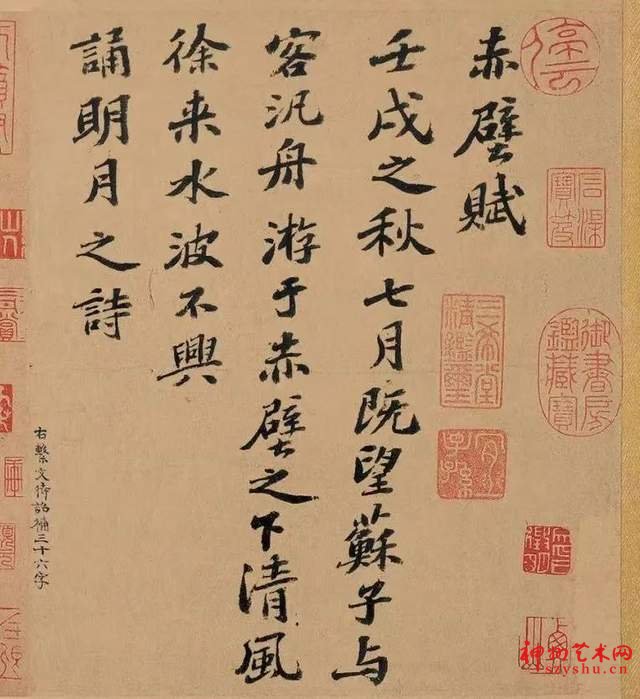 赤壁賦
壬戌之秋七月既望蘇子与
客汎舟游于赤壁之下清風
徐来水波不興
誦明月之詩
右繫文待詔補三十六字
御書房鑑藏寶
三希堂精鑑璽
宜子孫
神州艺术网
szyshu.com